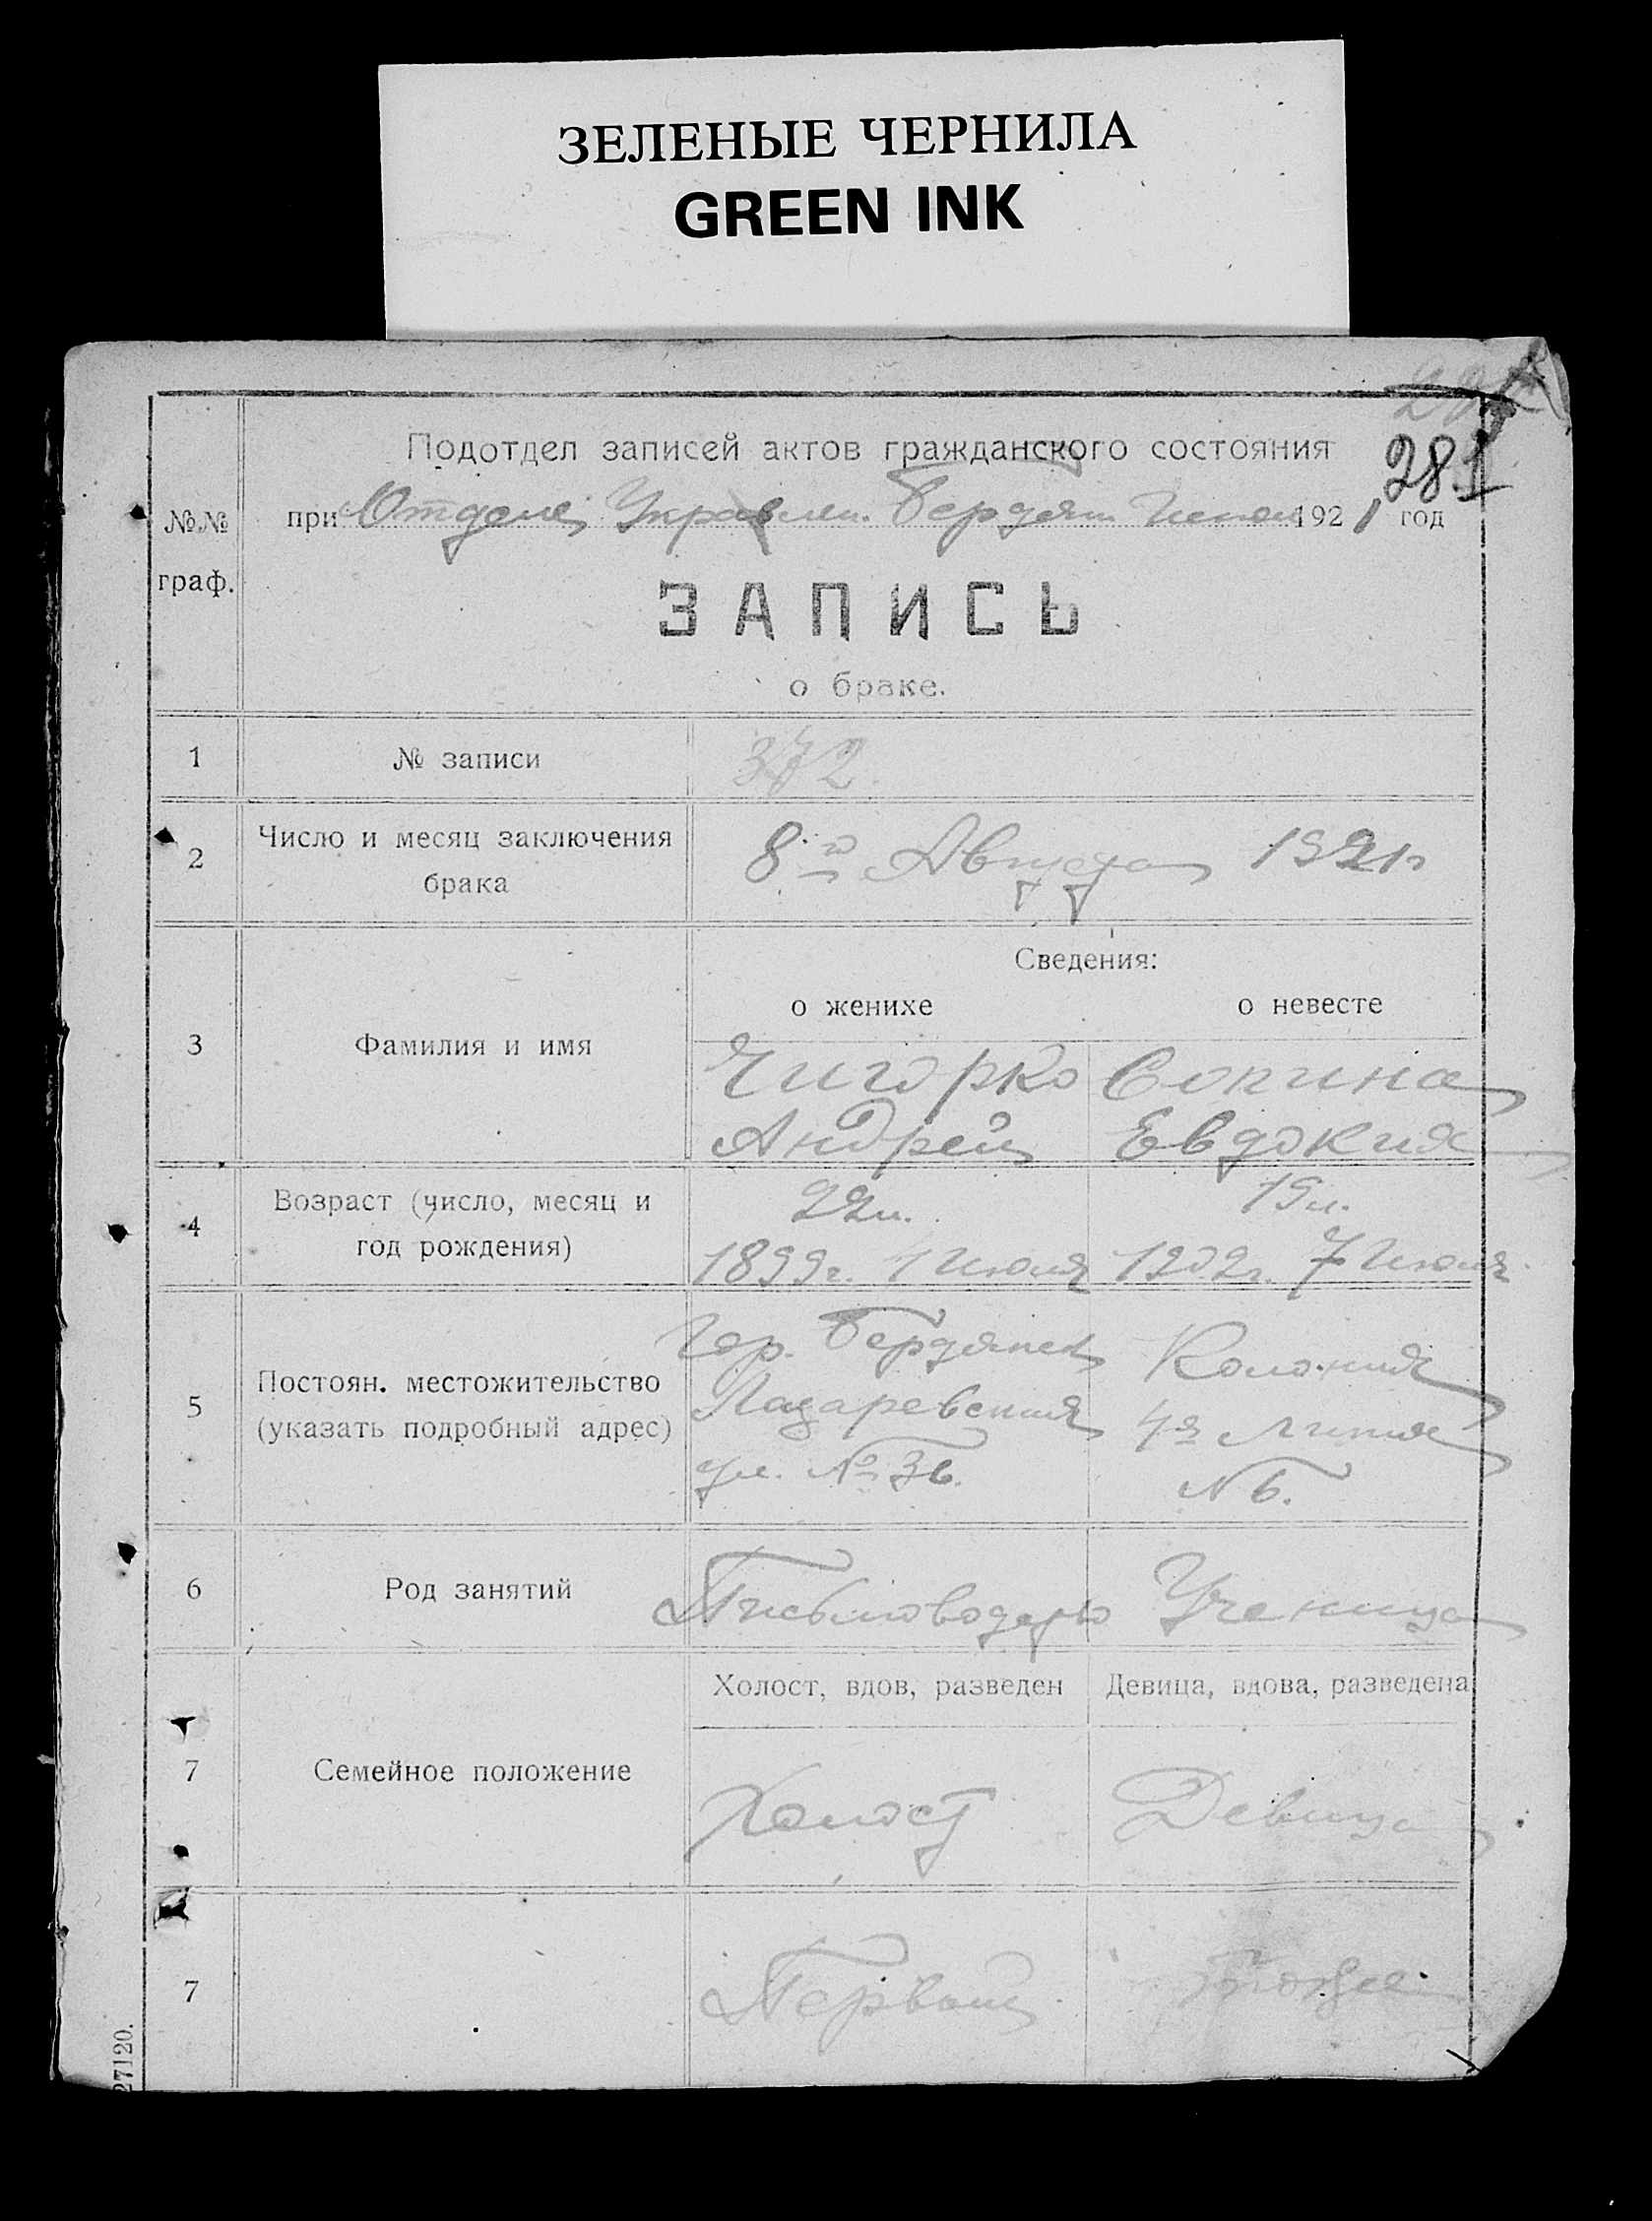 ЗЕЛЕНЫЕ ЧЕРНИЛА
GREEN INK
281
Подотдел записей актов гражданского состояния
№№ граф.
при Отделе Управлен. Бердян. 1921 год
ЗАПИСЬ
о браке.
1 № записи 372
2 Число и месяц заключения брака 8го Августа 1921г
Сведения:
о женихе о невесте
3 Фамилия и имя
Чигорко Сопина
Андрей Евдокия
4 Возраст (число, месяц и год рождения)
22л. 19л.
1899г. 1 Июля 1902г. 7 Июля
5 Постоян. местожительство (указать подробный адрес)
Гор. Бердянск Колония
Лазаревская 4я Линия
ул. № 36. N 6.
6 Род занятий Письмоводит. Ученица
Холост, вдов, разведен Девица, вдова, разведена
7 Семейное положение
Холост Девица
7 Первый Тоже
27120.